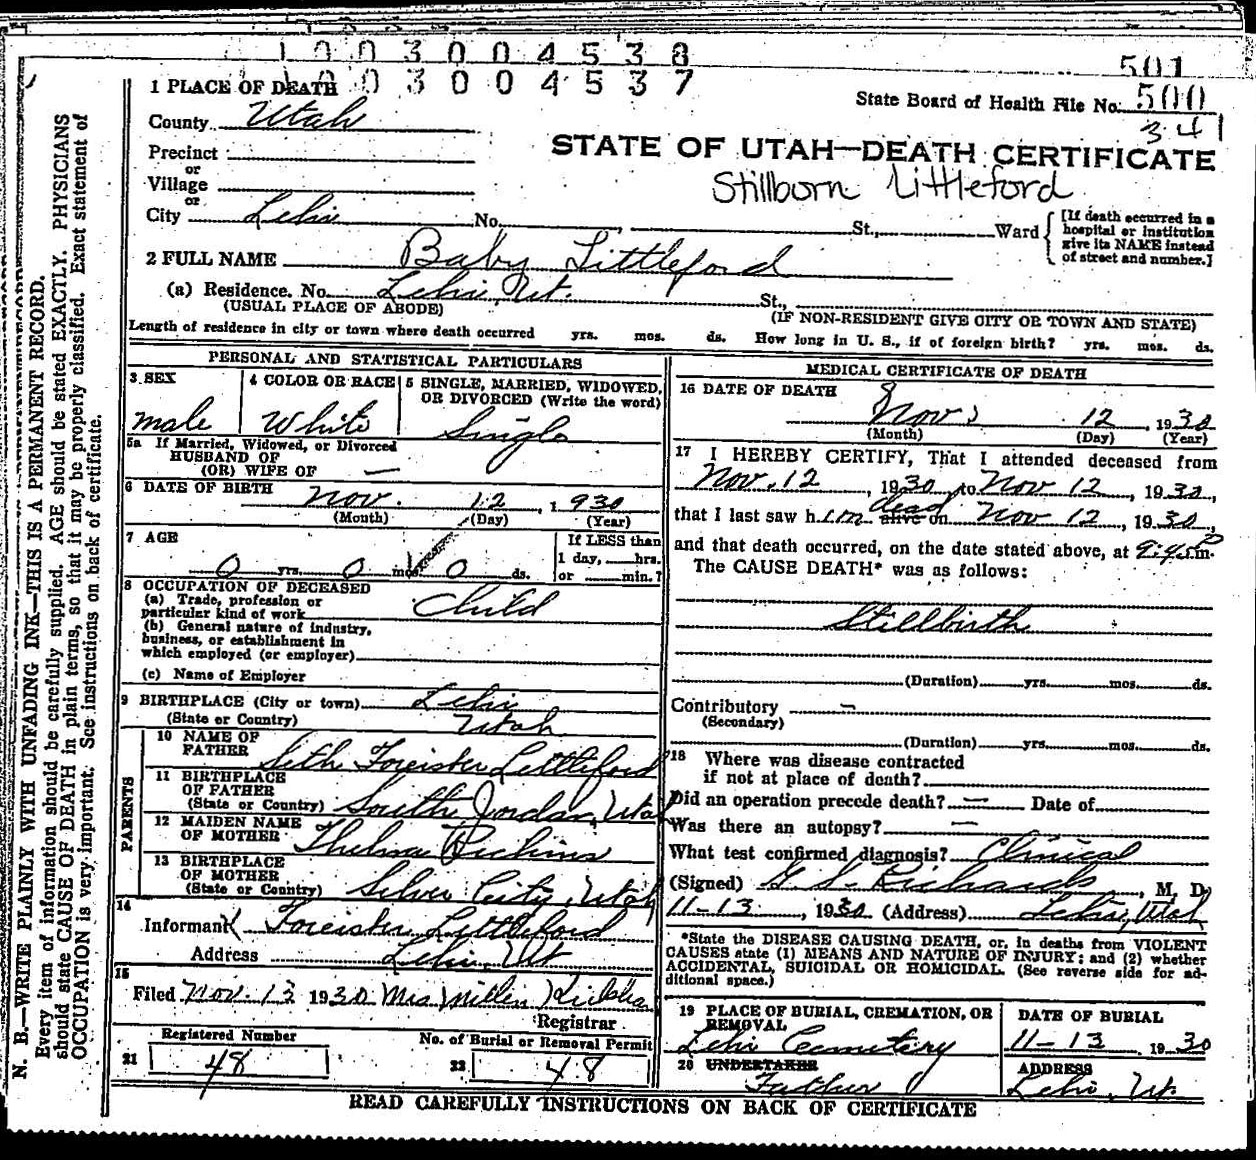 1003004538
1003004537
501
1 PLACE OF DEATH
State Board of Health File No. 500
341
County Utah
STATE OF UTAH—DEATH CERTIFICATE
Precinct
or
Village
Stillborn Littleford
or
City Lehi No. St., Ward
[If death occurred in a
hospital or institution
give its NAME instead
of street and number.]
2 FULL NAME Baby Littleford
(a) Residence. No. Lehi, Ut. St.,
(USUAL PLACE OF ABODE) (IF NON-RESIDENT GIVE CITY OR TOWN AND STATE)
Length of residence in city or town where death occurred yrs. mos. ds. How long in U. S., if of foreign birth? yrs. mos. ds.
PERSONAL AND STATISTICAL PARTICULARS
3 SEX
male
4 COLOR OR RACE
White
5 SINGLE, MARRIED, WIDOWED,
OR DIVORCED (Write the word)
Single
5a If Married, Widowed, or Divorced
HUSBAND OF
(OR) WIFE OF —
6 DATE OF BIRTH Nov. 12, 1930
(Month) (Day) (Year)
7 AGE
0 yrs. 0 mos. 0 ds.
If LESS than
1 day, hrs.
or min.?
8 OCCUPATION OF DECEASED
(a) Trade, profession or
particular kind of work Child
(b) General nature of industry,
business, or establishment in
which employed (or employer)
(c) Name of Employer
9 BIRTHPLACE (City or town) Lehi
(State or Country) Utah
PARENTS
10 NAME OF
FATHER Seth Foreister Littleford
11 BIRTHPLACE
OF FATHER
(State or Country) South Jordan, Utah
12 MAIDEN NAME
OF MOTHER Thelma
13 BIRTHPLACE
OF MOTHER
(State or Country) Silver City, Utah
14
Informant Foreister Littleford
Address Lehi, Ut
15
Filed Nov. 13 1930 Mrs
Registrar
Registered Number
21 48
No. of Burial or Removal Permit
22 48
MEDICAL CERTIFICATE OF DEATH
16 DATE OF DEATH
8
Nov. 12, 1930
(Month) (Day) (Year)
17 I HEREBY CERTIFY, That I attended deceased from
Nov. 12, 1930 to Nov 12, 1930,
that I last saw him alive on dead Nov 12, 1930,
and that death occurred, on the date stated above, at m.
The CAUSE DEATH* was as follows:
Stillbirth
(Duration) yrs. mos. ds.
Contributory —
(Secondary)
(Duration) yrs. mos. ds.
18 Where was disease contracted
if not at place of death?
Did an operation precede death? — Date of
Was there an autopsy? —
What test confirmed diagnosis? Clinical
(Signed) G. S. Richards, M. D.
11-13, 1930 (Address) Lehi, Utah
*State the DISEASE CAUSING DEATH, or, in deaths from VIOLENT
CAUSES state (1) MEANS AND NATURE OF INJURY; and (2) whether
ACCIDENTAL, SUICIDAL OR HOMICIDAL. (See reverse side for ad-
ditional space.)
19 PLACE OF BURIAL, CREMATION, OR
REMOVAL
Lehi Cemetery
DATE OF BURIAL
11-13, 1930
20 UNDERTAKER
Father
ADDRESS
Lehi, Ut.
READ CAREFULLY INSTRUCTIONS ON BACK OF CERTIFICATE
N. B.—WRITE PLAINLY WITH UNFADING INK—THIS IS A PERMANENT RECORD.
Every item of information should be carefully supplied. AGE should be stated EXACTLY. PHYSICIANS
should state CAUSE OF DEATH in plain terms, so that it may be properly classified. Exact statement of
OCCUPATION is very important. See instructions on back of certificate.